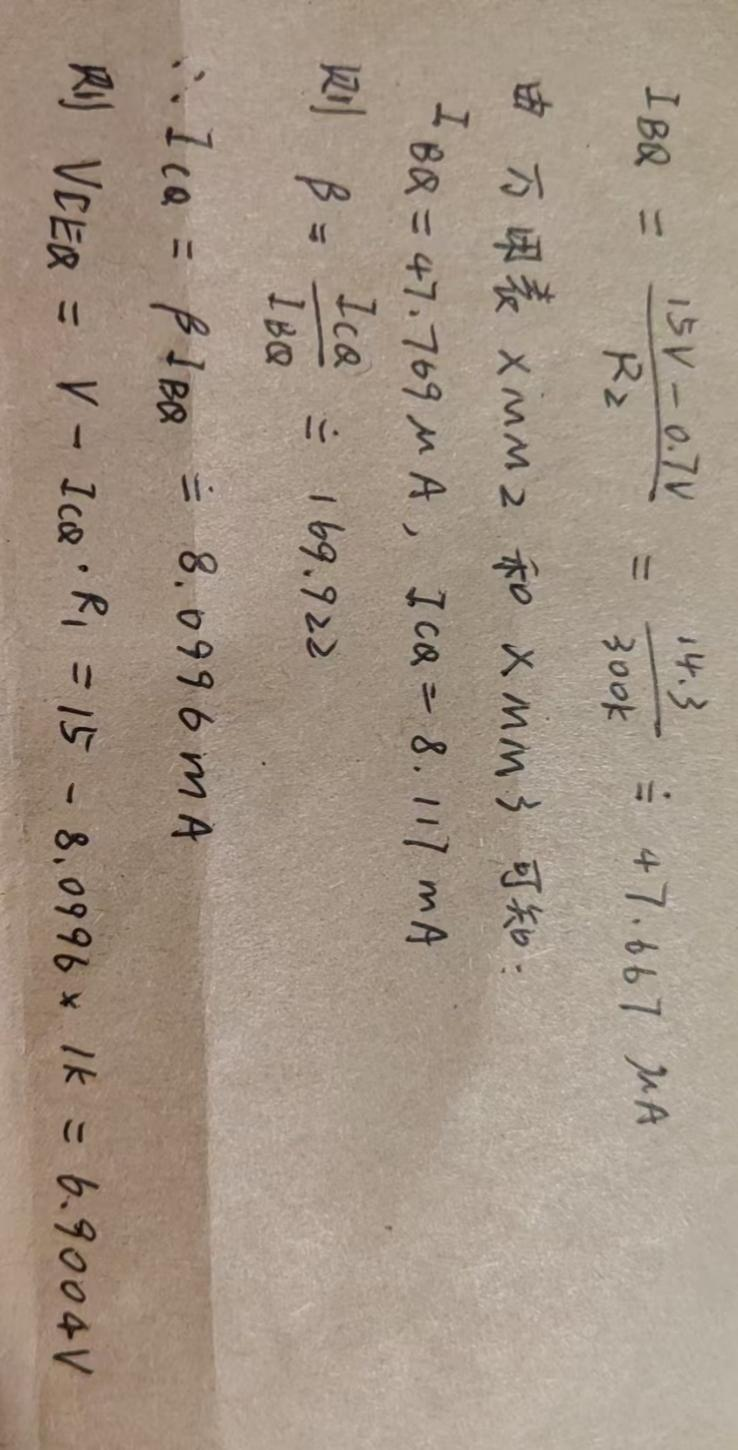 I_{BQ} = \frac{15V - 0.7V}{R_2} = \frac{14.3}{300k} ≐ 47.667 μA
由万用表 XMM2 和 XMM3 可知:
I_{BQ} = 47.769 μA, I_{CQ} = 8.117 mA
则 β = \frac{I_{CQ}}{I_{BQ}} ≐ 169.922
∴ I_{CQ} = β I_{BQ} ≐ 8.0996 mA
则 V_{CEQ} = V - I_{CQ} · R_1 = 15 - 8.0996 × 1k = 6.9004V